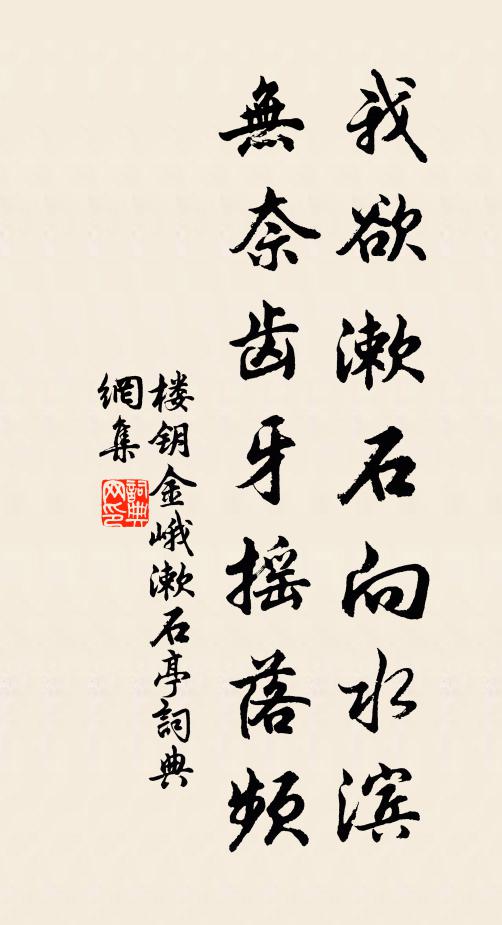 我欲漱石向水滨
無奈齿牙摇落频
楼钥金峨漱石亭詞典
網集
詞典網印